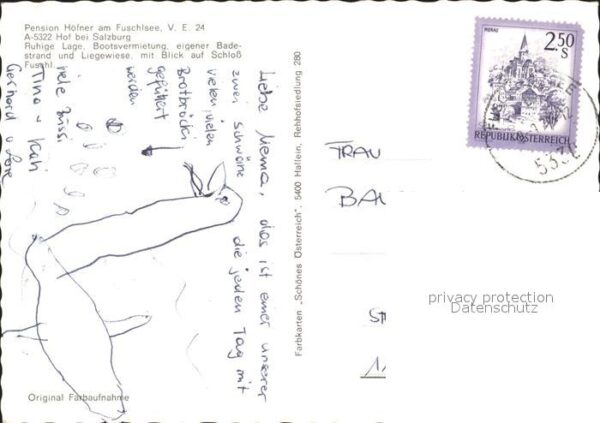 Pension Höfner am Fuschlsee, V. E. 24
A-5322 Hof bei Salzburg
Ruhige Lage, Bootsvermietung, eigener Bade-
strand und Liegewiese, mit Blick auf Schloß
Fuschl.
Liebe Mema, das ist einer unserer
zwei schwäne die jeden Tag mit
vielen, vielen
Brotbröckli
gefüttert
werden
viele Bussi
Tina + Kati
Gerhard u Lore
Original Farbaufnahme
Farbkarten „Schönes Österreich", 5400 Hallein, Rehhofsiedlung 280
MURAU
2.50
S
REPUBLIK ÖSTERREICH
FRAU
BA
privacy protection
Datenschutz